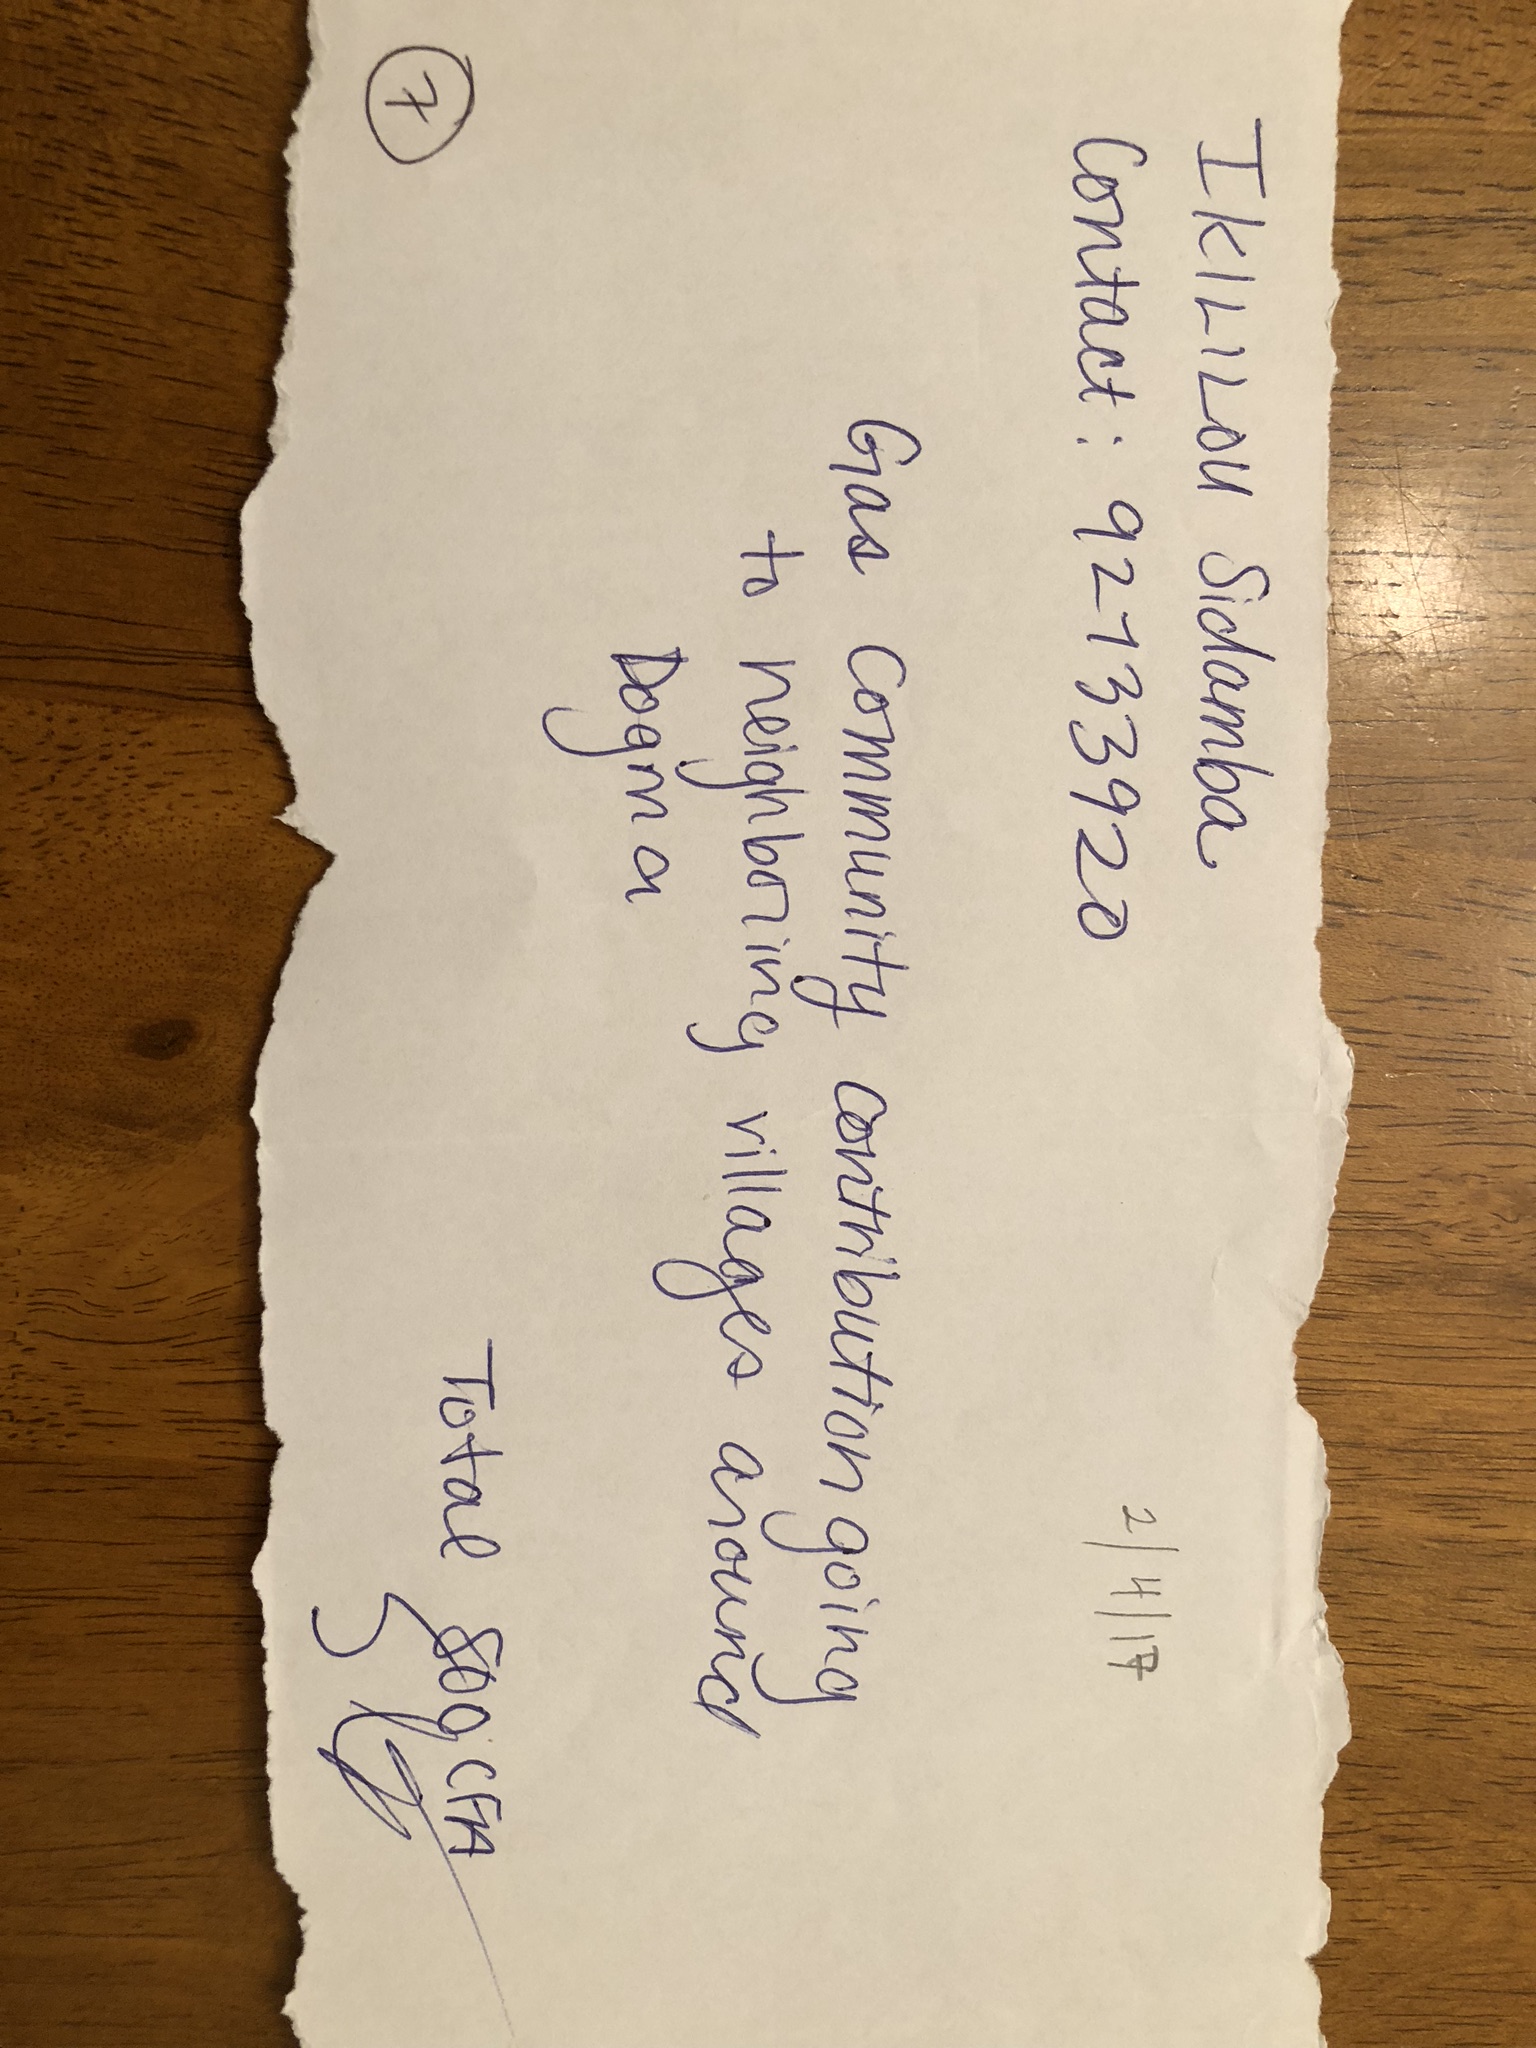 IKILILOU Sidamba
Contact: 92133920
2/4/17
Gas Community contribution going
to neighboring villages around
Dogma
Total CFA
7